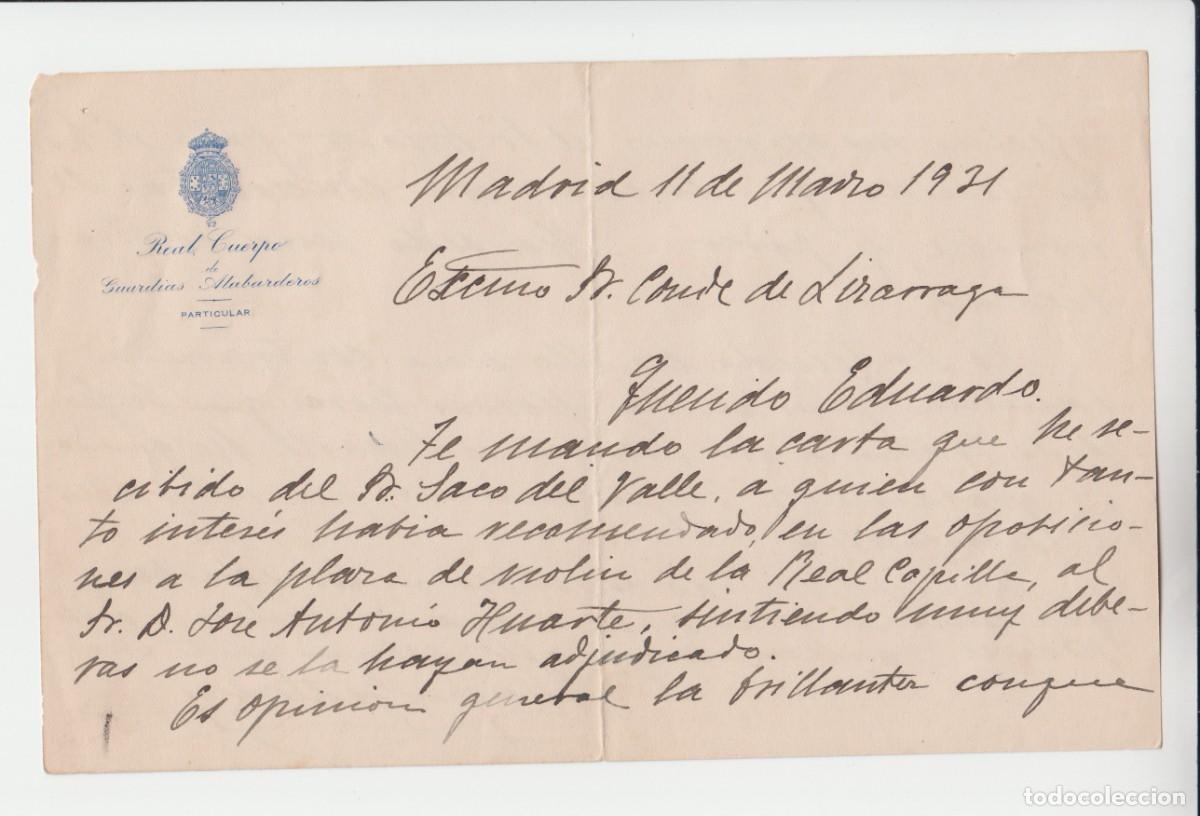 Real Cuerpo
de
Guardias Alabarderos
PARTICULAR
Madrid 11 de Marzo 1931
Excmo Sr. Conde de Lizarraga
Querido Eduardo.
Te mando la carta que he re-
cibido del Sr. Saco del Valle, a quien con tan-
to interés habia recomendado, en las oposicio-
nes a la plaza de violin de la Real Capilla, al
Sr. D. Jose Antonio Huarte, sintiendo muy debe-
ras no se la hayan adjudicado.
Es opinion general la brillantez conque
todocoleccion